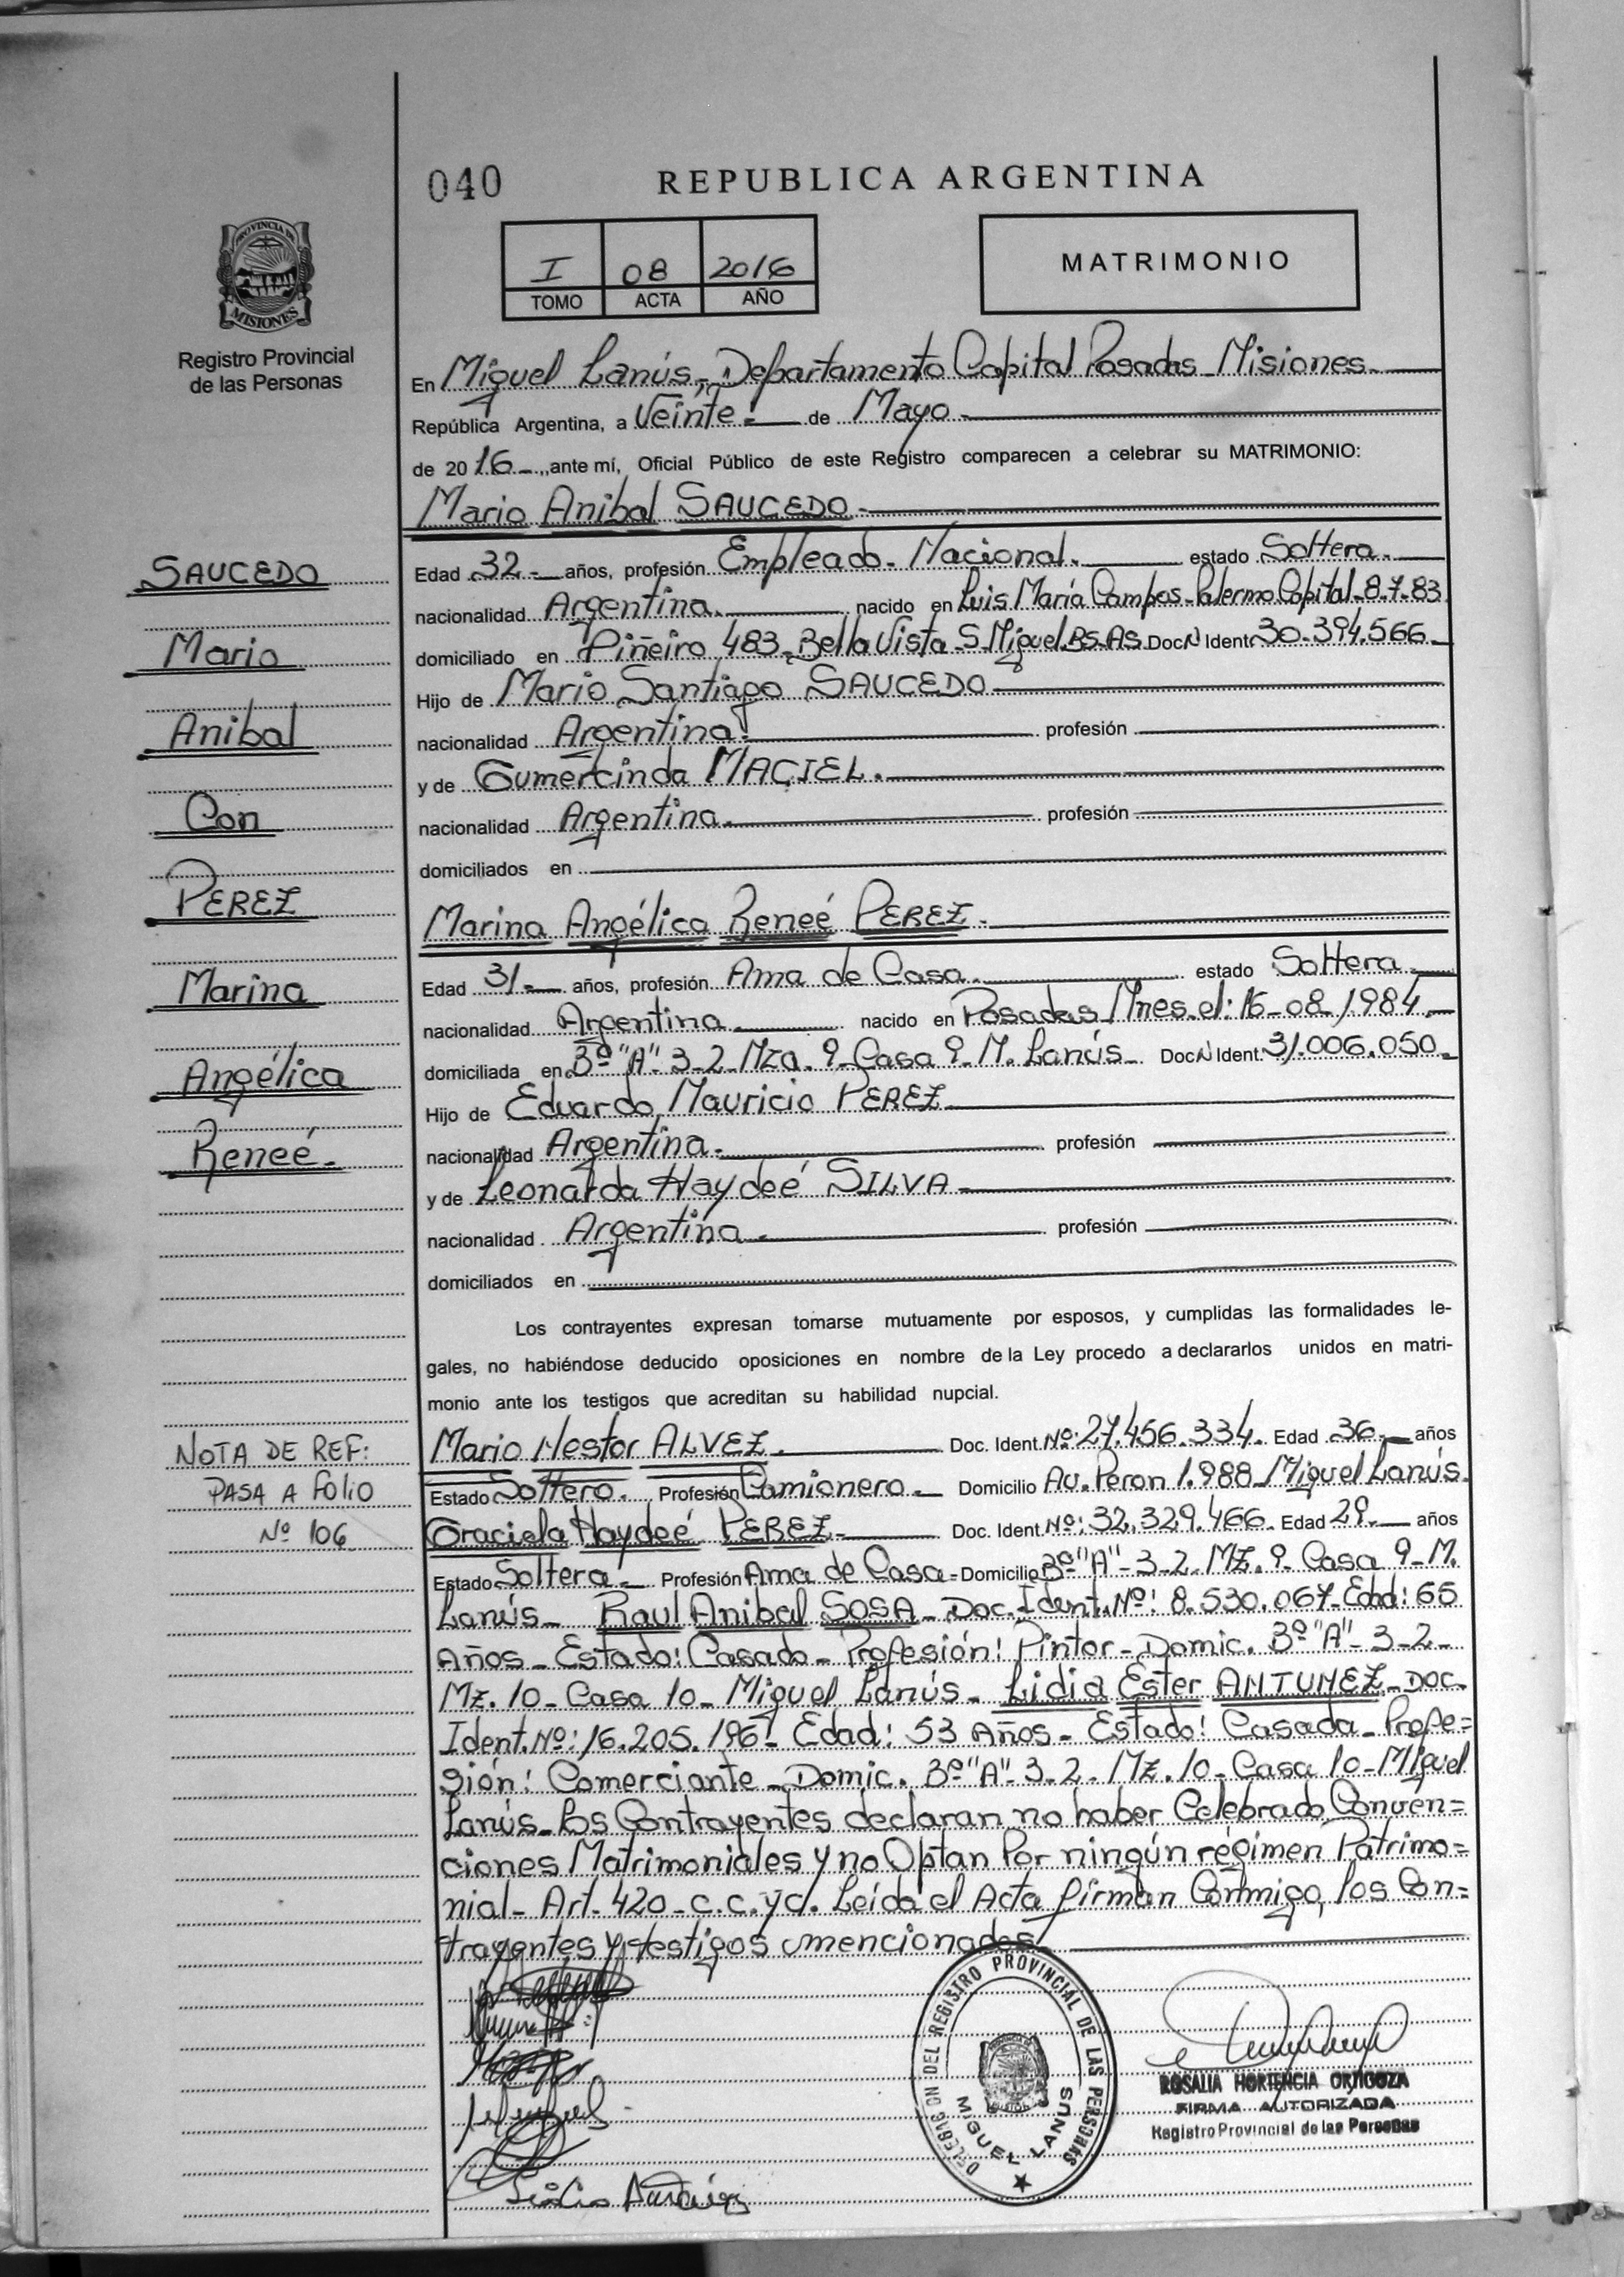 040
REPUBLICA ARGENTINA
PROVINCIA DE
MISIONES
Registro Provincial
de las Personas
I 08 2016
TOMO ACTA AÑO
MATRIMONIO
En Miguel Lanús, Departamento Capital Posadas Misiones
República Argentina, a Veinte de Mayo
de 2016, ante mí, Oficial Público de este Registro comparecen a celebrar su MATRIMONIO:
Mario Anibal SAUCEDO
Edad 32 años, profesión Empleado Nacional. estado Soltera
nacionalidad Argentina nacido en Luis María Campos-Palermo Capital-8-7-83
domiciliado en Piñeiro 483-Bella Vista-S.Miguel.Bs.As Doc. N Ident. 30.394.566
Hijo de Mario Santiago SAUCEDO
nacionalidad Argentina profesión
y de Gumercinda MACIEL.
nacionalidad Argentina profesión
domiciliados en
Marina Angélica Reneé PEREZ
Edad 31 años, profesión Ama de Casa. estado Soltera
nacionalidad Argentina nacido en Posadas Mnes. el: 16-08-1984
domiciliada en Bº "A"-3-2-Mza. 9-Casa 9-M. Lanús Doc. N Ident. 31.006.050
Hijo de Eduardo Mauricio PEREZ
nacionalidad Argentina profesión
y de Leonarda Haydeé SILVA
nacionalidad Argentina profesión
domiciliados en
Los contrayentes expresan tomarse mutuamente por esposos, y cumplidas las formalidades le-
gales, no habiéndose deducido oposiciones en nombre de la Ley procedo a declararlos unidos en matri-
monio ante los testigos que acreditan su habilidad nupcial.
Mario Nestor ALVEZ. Doc. Ident. Nº: 27.456.334. Edad 36 años
Estado Soltero. Profesión Camionero Domicilio Av. Peron 1.988 Miguel Lanús
Graciela Haydeé PEREZ Doc. Ident. Nº: 32.329.466. Edad 29 años
Estado Soltera Profesión Ama de Casa-Domicilio Bº "A"-3-2. MZ. 9-Casa 9-M.
Lanús- Raul Anibal SOSA-Doc. Ident. Nº: 8.530.067-Edad: 65
Años-Estado: Casado-Profesión: Pintor-Domic. Bº "A"-3-2-
Mz. 10-Casa 10-Miguel Lanús-Lidia Ester ANTUNEZ-DOC.
Ident. Nº: 16.205.196-Edad: 53 Años-Estado: Casada-Profe=
sión: Comerciante-Domic. Bº "A"-3-2-Mz. 10-Casa 10-Miguel
Lanús-Los Contrayentes declaran no haber Celebrado Conven=
ciones Matrimoniales y no Optan Por ningún régimen Patrimo=
nial-Art-420-C.C. y C. Leída el Acta firman Conmigo, los Con=
trayentes y testigos mencionados
SAUCEDO
Mario
Anibal
Con
PEREZ
Marina
Angélica
Reneé
NOTA DE REF:
PASA A FOLIO
Nº 106
DELEGACION DEL REGISTRO PROVINCIAL DE LAS PERSONAS
MIGUEL LANUS
ROSALIA HORTENCIA ORTIGOZA
FIRMA AUTORIZADA
Registro Provincial de las Personas